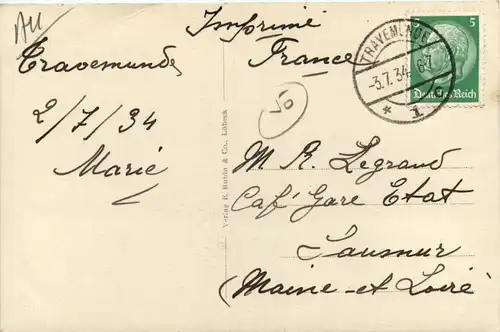 AU
Imprimé
France
Travemunde
2/7/34
Marie
TRAVEMÜNDE
-3.7.34.
* 1
5
Deutsches Reich
10
Verlag R. & Co., Lübeck
M R. Legrand
Caf' Gare Etat
Saumur
(Maine-et Loire)